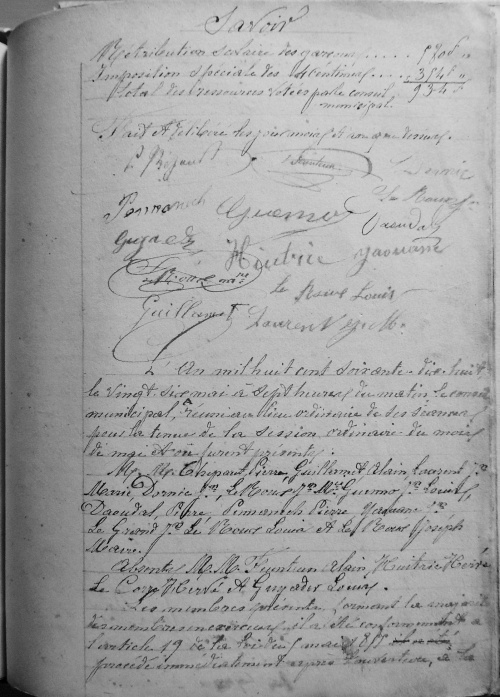 Savoir
Rétribution scolaire des garçons . . . . . 580f "
Imposition spéciale des 4 centimes . . . . 354f "
Total des ressources votées par le conseil 934f "
municipal
Fait et délibéré les jour mois et an que dessus.
Guermo
Guyader
Huitric Yaouanc
le Roux Louis
Guillamet Laurent
L'An mil huit cent soixante-dix-huit
le vingt six mai à sept heures du matin, le conseil
municipal, réuni au lieu ordinaire de ses séances
pour la tenue de la session ordinaire du mois
de mai et où furent présents.
M. M. Chapart Pierre, Guillamet Alain, Laurent Jn
Marie, Dornic Jn, Le Roux Jn Mie, Guermo Louis,
Daoudal Pierre, Yaouanc Jn
Le Grand Jn, Le Roux Louis et Le Roux Joseph
Maire
Absents M. M. Feuntun Alain, Huitric Hervé
Le Corre Hervé et Guyader Louis.
Les membres présents formant la majorité
des membres en exercice, il a été conformément à
l'article 19 de la loi du 5 mai 1855
procédé immédiatement après l'ouverture, à la